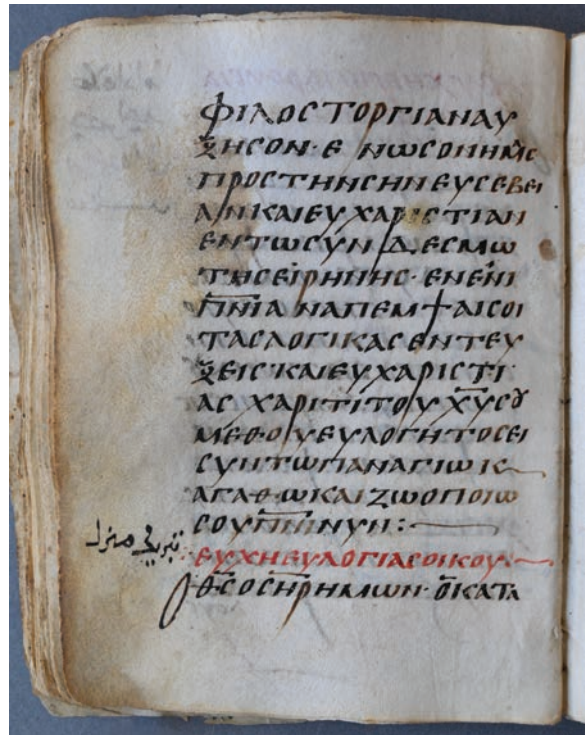 ΦΙΛΟCΤΟΡΓΙΑΝΑΥ
ΞΗCΟΝ· ΕΝΩCΟΝΗΜΑC
ΠΡΟCΤΗΝCΗΝΕΥCΕΒΕΙ
ΑΝΚΑΙΕΥΧΑΡΙCΤΙΑΝ
ΕΝΤΩCΥΝΔΕCΜΩ
ΤΗCΕΙΡΗΝΗC· ΕΝΕΝΙ
Π̅Ν̅Ι ΑΝΑΠΕΜΨΑΙCΟΙ
ΤΑCΛΟΓΙΚΑCΕΝΤΕΥ
ΞΕΙC·ΚΑΙΕΥΧΑΡΙCΤΙ
ΑC ΧΑΡΙΤΙΤΟΥΧ̅Υ̅CȢ
ΜΕΘΟΥΕΥΛΟΓΗΤΟCΕΙ
CΥΝΤΩΠΑΝΑΓΙΩΚ
ΑΓΑΘΩΚΑΙΖΩΟΠΟΙΩ
CΟΥΠ̅Ν̅ΙΝΥΝ:
تبريك منزل
ΕΥΧΗΕΥΛΟΓΙΑCΟΙΚΟΥ:
ΟΘ̅C̅ΟC̅Η̅Ρ̅ΗΜΩΝ· ΟΚΑΤΑ